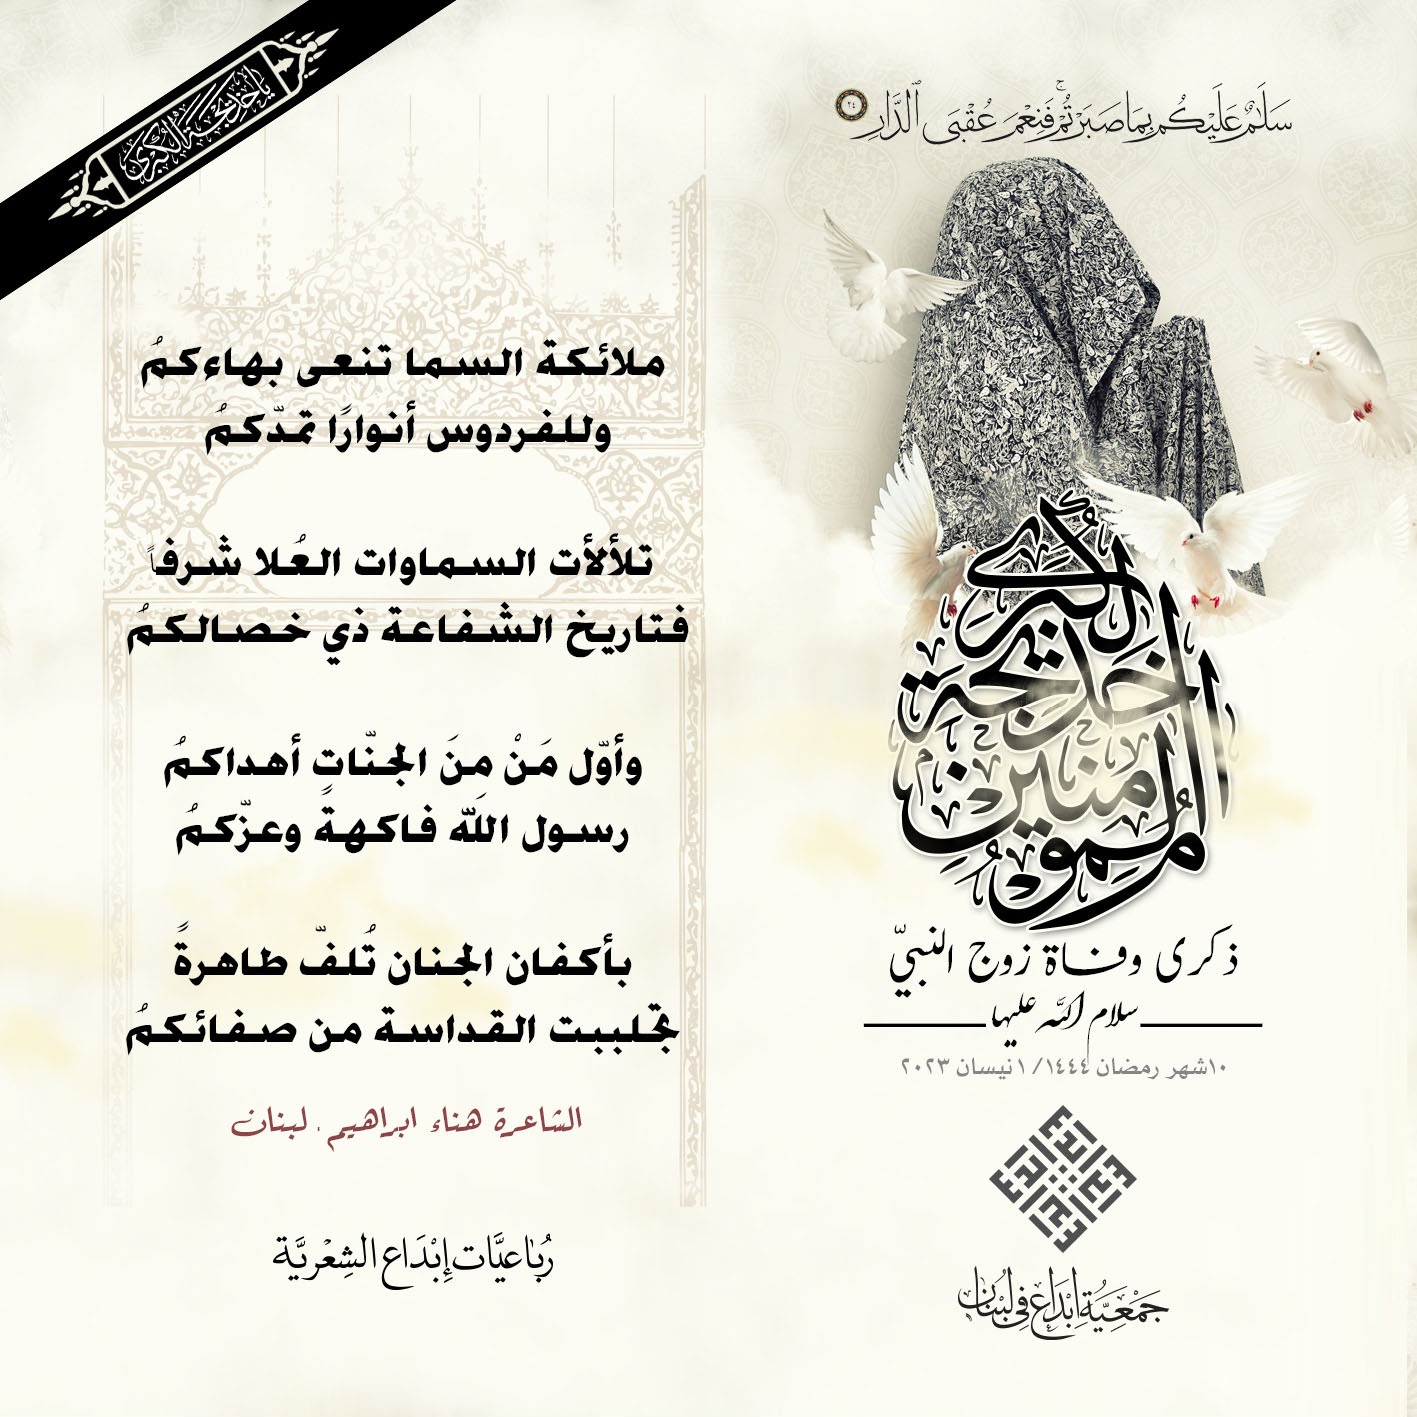 يا خديجة الكبرى
سَلَٰمٌ عَلَيْكُم بِمَا صَبَرْتُمْ ۚ فَنِعْمَ عُقْبَى ٱلدَّارِ ٢٤
ملائكة السما تنعى بهاءكمُ
وللفردوس أنوارًا تمدّكمُ
تلألأت السماوات العُلا شرفاً
فتاريخ الشفاعة ذي خصالكمُ
وأوّل مَنْ مِنَ الجنّاتِ أهداكمُ
رسول اللهِ فاكهةً وعزّكمُ
بأكفان الجنان تُلفّ طاهرةً
تجلببت القداسة من صفائكمُ
الشاعرة هناء ابراهيم . لبنان
رُبَاعيَّات إِبْدَاع الشِعْريَّة
أم المؤمنين خديجة الكبرى
ذكرى وفاة زوج النبيّ
سلام الله عليها
١٠شهر رمضان ١٤٤٤/ ١نيسان ٢٠٢٣
إبداع
جَمْعِيَّةُ إِبْدَاع فِي لُبْنَان